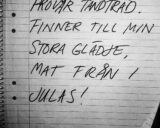 PROVAR TANDTRÅD.
FINNER TILL MIN
STORA GLÄDJE,
MAT FRÅN I
JULAS!